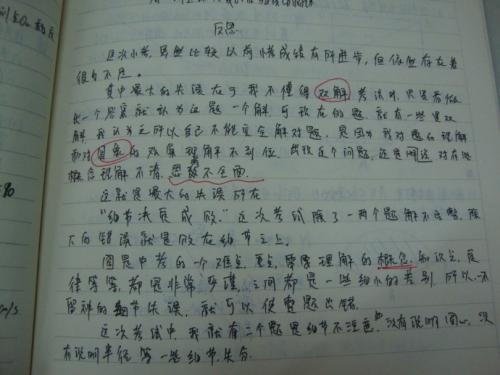 反思
这次小考,虽然比较以前小考成绩有所进步,但依然存在着
很多不足。
其中最大的失误在于我不懂得双解考法,只要看做
出一个答案就认为这题一个解可我在的题,就有一些是双
解,我认为之所以自己不能完全解对题,是因为我对题的理解
和对图象的理解不到位,出现这个问题,还是对
概念理解不清,思考不全面。
这就是最大的失误所在
“细节决定成败”这次考试除了一两个题解不完整,很
大的错误就是败在细节之上。
圆是中考的一个难点,要点,需要理解的概念,知识点,定
律等等,都是非常,之间都是一些细小的差别,所以,不
留神的细节失误,就可以使整题出错。
这次考试中,我就有三个题是细节不注意,没有说明圆心,没
有说明半径,等一些细节失分。